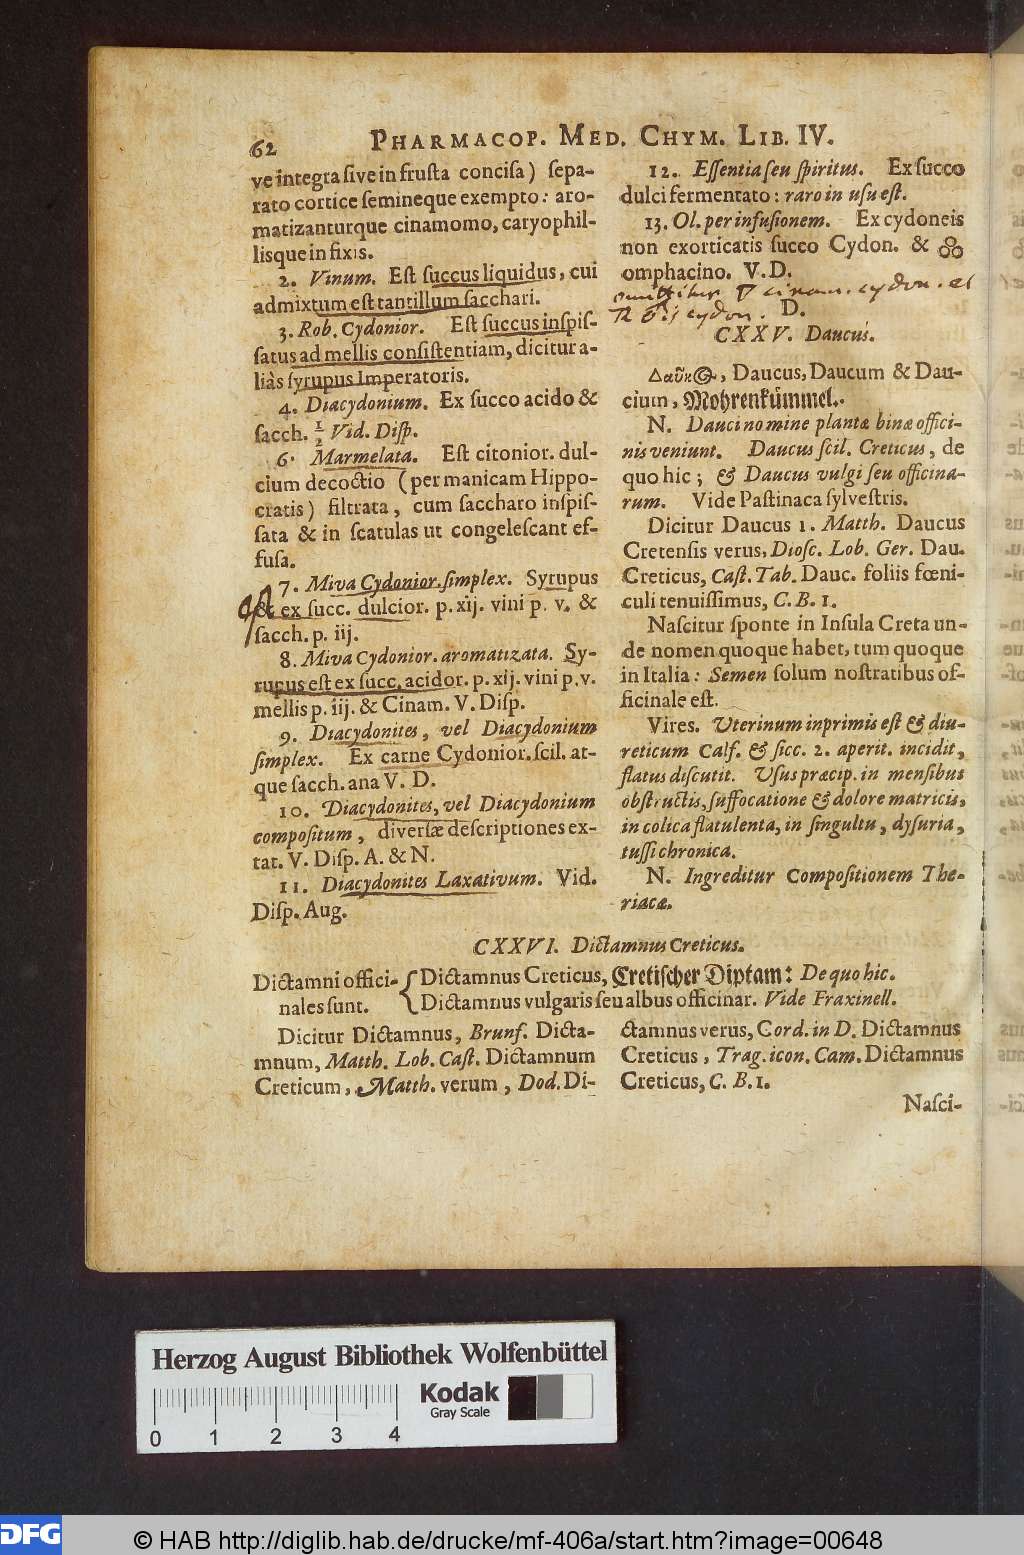 62 PHARMACOP. MED. CHYM. LIB. IV.
ve integra sive in frusta concisa) sepa-
rato cortice semineque exempto: aro-
matizanturque cinamomo, caryophil-
lisque in fixis.
2. Vinum. Est succus liquidus, cui
admixtum est tantillum sacchari.
3. Rob. Cydonior. Est succus inspis-
satus ad mellis consistentiam, dicitur a-
liàs syrupus Imperatoris.
4. Diacydonium. Ex succo acido &
sacch. ½ Vid. Disp.
6. Marmelata. Est citonior. dul-
cium decoctio (per manicam Hippo-
cratis) filtrata, cum saccharo inspis-
sata & in scatulas ut congelescant ef-
fusa.
7. Miva Cydonior. simplex. Syrupus
& ex succ. dulcior. p. xij. vini p. v. &
sacch. p. iij.
8. Miva Cydonior. aromatizata. Sy-
rupus est ex succ. acidor. p. xij. vini p. v.
mellis p. iij. & Cinam. V. Disp.
9. Diacydonites, vel Diacydonium
simplex. Ex carne Cydonior. scil. at-
que sacch. ana V. D.
10. Diacydonites, vel Diacydonium
compositum, diversæ descriptiones ex-
tat. V. Disp. A. & N.
11. Diacydonites Laxativum. Vid.
Disp. Aug.
12. Essentia seu spiritus. Ex succo
dulci fermentato: raro in usu est.
13. Ol. per infusionem. Ex cydoneis
non exorticatis succo Cydon. &
omphacino. V. D.
cinam. cydon. et
cydon. D.
CXXV. Daucus.
Δαῦκος, Daucus, Daucum & Dau-
cium, Mohrenkümmel.
N. Dauci nomine plantæ binæ offici-
nis veniunt. Daucus scil. Creticus, de
quo hic; & Daucus vulgi seu officina-
rum. Vide Pastinaca sylvestris.
Dicitur Daucus 1. Matth. Daucus
Cretensis verus, Diosc. Lob. Ger. Dau.
Creticus, Cast. Tab. Dauc. foliis fœni-
culi tenuissimus, C. B. 1.
Nascitur sponte in Insula Creta un-
de nomen quoque habet, tum quoque
in Italia: Semen solum nostratibus of-
ficinale est.
Vires. Uterinum inprimis est & diu-
reticum Calf. & sicc. 2. aperit. incidit,
flatus discutit. Usus præcip. in mensibus
obstructis, suffocatione & dolore matricis,
in colica flatulenta, in singultu, dysuria,
tussi chronica.
N. Ingreditur Compositionem The-
riacæ.
CXXVI. Dictamnus Creticus.
Dictamni offici-
nales sunt.
Dictamnus Creticus, Cretischer Diptam: De quo hic.
Dictamnus vulgaris seu albus officinar. Vide Fraxinell.
Dicitur Dictamnus, Brunf. Dicta-
mnum, Matth. Lob. Cast. Dictamnum
Creticum, Matth. verum, Dod. Di-
ctamnus verus, Cord. in D. Dictamnus
Creticus, Trag. icon. Cam. Dictamnus
Creticus, C. B. 1.
Nasci-
Herzog August Bibliothek Wolfenbüttel
Kodak
Gray Scale
0 1 2 3 4
DFG
© HAB http://diglib.hab.de/drucke/mf-406a/start.htm?image=00648